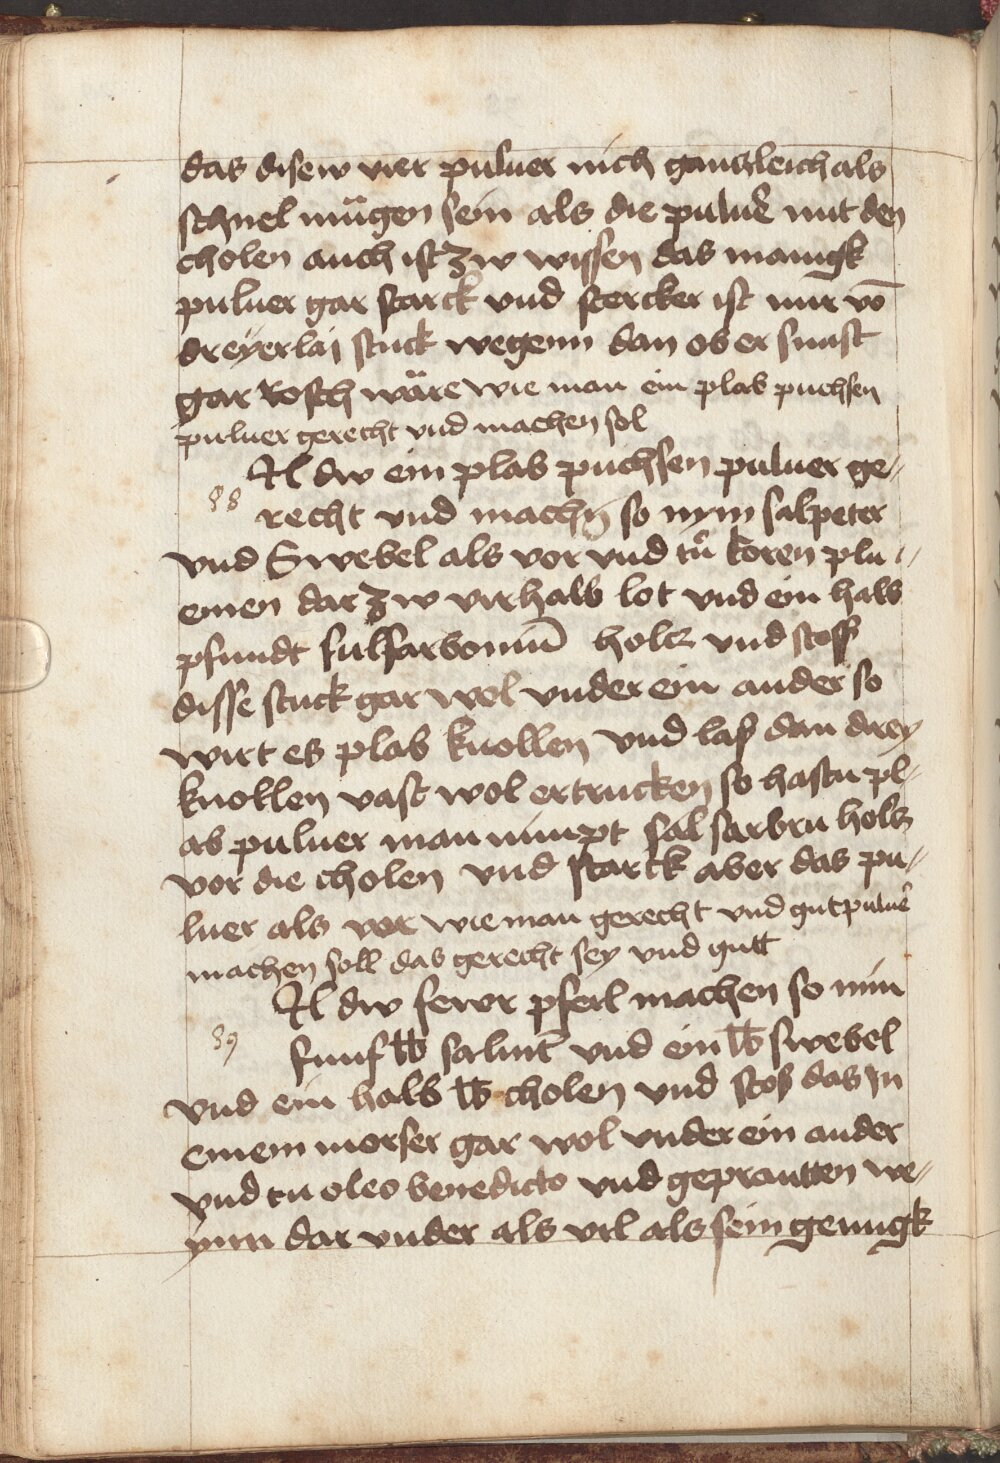 das disew vier puluer nich gantzleich als
schnel mügen sein als die puluer mit den
cholen auch ist zw wissen das manigk
puluer gar starck vnd stercker ist nur vō
dreyerlaj stuck wegenn dan ob er sunst
gar rosch wäre wie man ein plab puchsen
puluer gerecht vnd machen sol
Il dw ein plab puchsen puluer ge-
88 recht vnd machn̄ so nym salpeter
vnd Swebel als vor vnd tů koren plu-
emen dar zw virhalb lot vnd ein halb
pfundt holcz vnd stosß
disse stuck gar wol vnder ein ander so
wirt es plab knollen vnd laß dan drey
knollen vast wol ertrucken so hastu pl-
ab puluer man nimpt holtz
vor die cholen vnd starck aber das pu-
luer als vor wie man gerecht vnd gut puluer
machen soll das gerecht sey vnd gutt
Il dw fewr pfeil machen so nim
89 funf ℔ salnit̄ vnd ein ℔ swebel
vnd ein halb ℔ cholen vnd stoß das jn
einem morser gar wol vnder ein ander
vnd tu oleo benedicto vnd geprantten we-
ynn dar vnder als vil als sein genugk